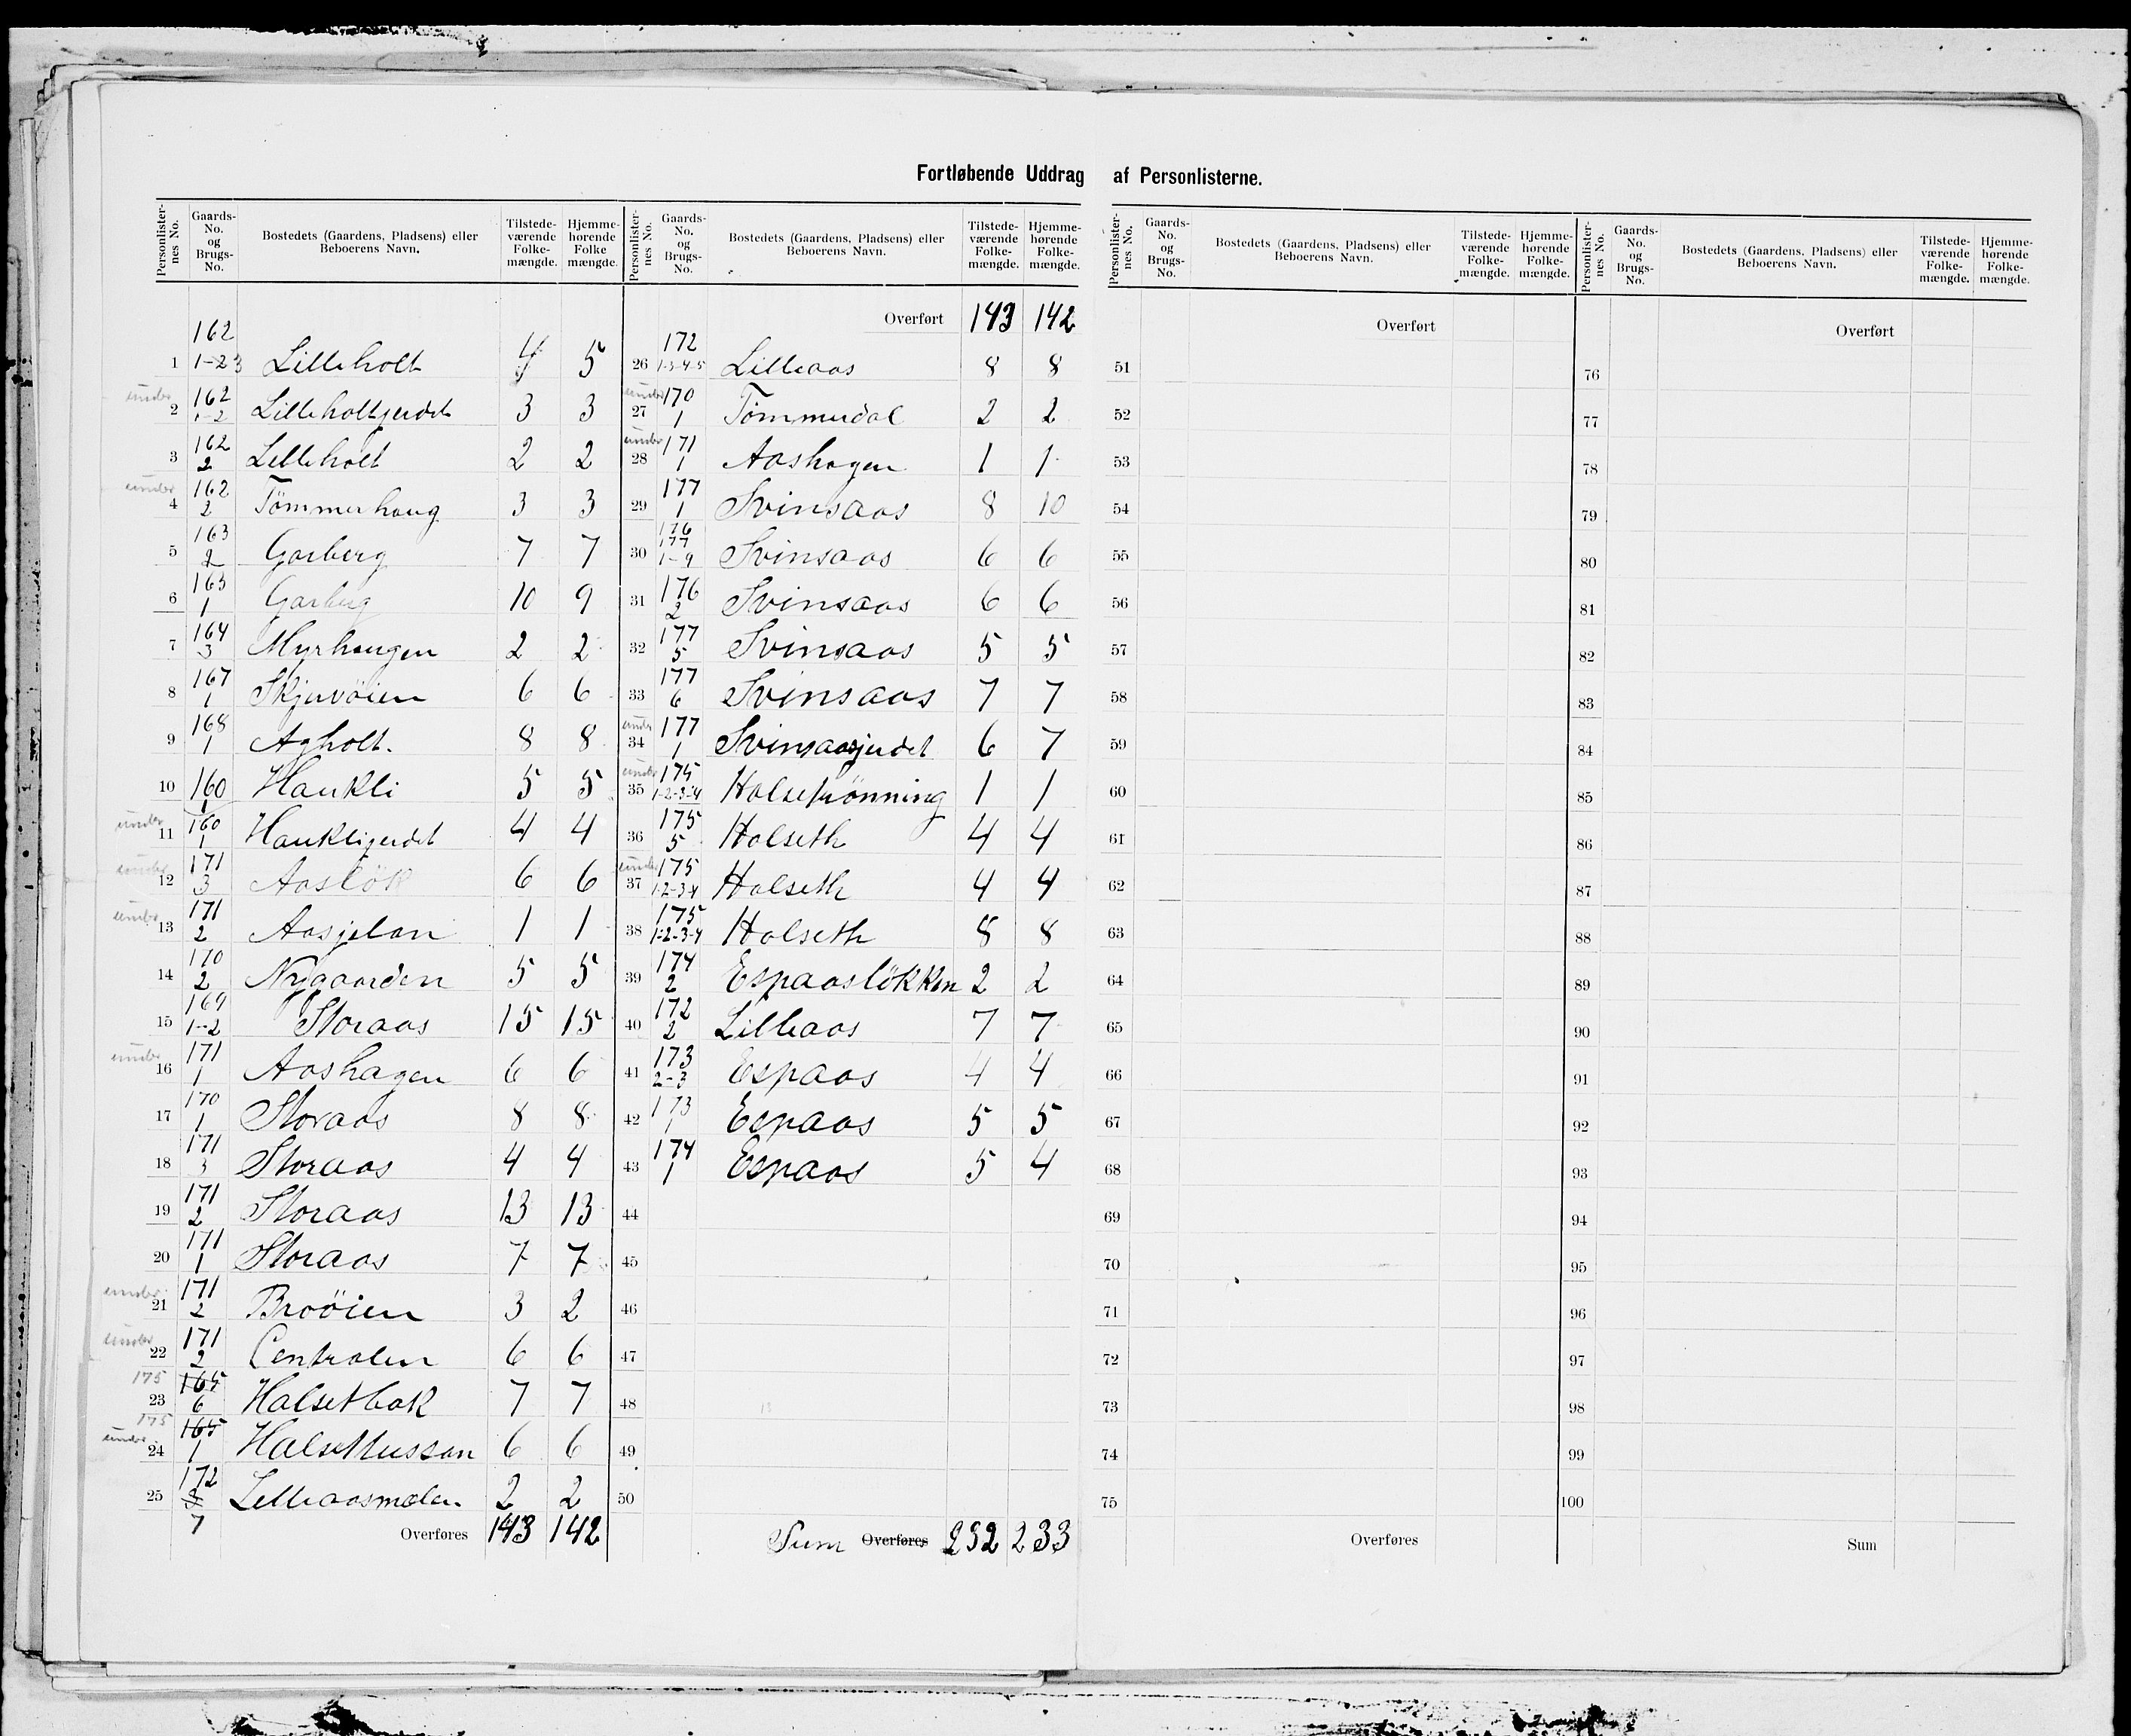 Fortløbende Uddrag af Personlisterne.
Personlisternes No. | Gaards-No. og Brugs-No. | Bostedets (Gaardens, Pladsens) eller Beboerens Navn. | Tilstedeværende Folkemængde. | Hjemmehørende Folkemængde.
1 | 162 1-2 3 | Lilleholt | 4 | 5
under 2 | 162 1-2 | Lilleholtgjerdet | 3 | 3
3 | 162 2 | Lilleholt | 2 | 2
under 4 | 162 2 | Tömmerhaug | 3 | 3
5 | 163 2 | Garberg | 7 | 7
6 | 163 1 | Garberg | 10 | 9
7 | 164 3 | Myrhaugen | 2 | 2
8 | 167 1 | Skjervöien | 6 | 6
9 | 168 1 | Agholt. | 8 | 8
10 | 160 1 | Haukli | 5 | 5
under 11 | 160 1 | Haukligjerdet | 4 | 4
under 12 | 171 3 | Aaslök | 6 | 6
under 13 | 171 2 | Aasjelan | 1 | 1
14 | 170 2 | Nygaarden | 5 | 5
15 | 169 1-2 | Storaas | 15 | 15
under 16 | 171 1 | Aashagen | 6 | 6
17 | 170 1 | Storaas | 8 | 8
18 | 171 3 | Storaas | 4 | 4
19 | 171 2 | Storaas | 13 | 13
20 | 171 1 | Storaas | 7 | 7
under 21 | 171 2 | Broöien | 3 | 2
under 22 | 171 2 | Centralen | 6 | 6
175 23 | 165 6 | Halsetbak | 7 | 7
175 under 24 | 165 1 | Halsethussan | 6 | 6
25 | 172 8 7 | Lilleaasmælen | 2 | 2
Overføres 143 142
Personlisternes No. | Gaards-No. og Brugs-No. | Bostedets (Gaardens, Pladsens) eller Beboerens Navn. | Tilstedeværende Folkemængde. | Hjemmehørende Folkemængde.
Overført 143 142
26 | 172 1-3-4-5 | Lilleaas | 8 | 8
under 27 | 170 1 | Tömmerdal | 2 | 2
under 28 | 171 1 | Aashagen | 1 | 1
29 | 177 1 | Svinsaas | 8 | 10
30 | 176 177 1-9 | Svinsaas | 6 | 6
31 | 176 2 | Svinsaas | 6 | 6
32 | 177 5 | Svinsaas | 5 | 5
33 | 177 6 | Svinsaas | 7 | 7
under 34 | 177 1 | Svinsaasgjerdet | 6 | 7
under 35 | 175 1-2-3-4 | Halsetrönning | 1 | 1
36 | 175 5 | Halseth | 4 | 4
under 37 | 175 1-2-3-4 | Halseth | 4 | 4
38 | 175 1-2-3-4 | Halseth | 8 | 8
39 | 174 2 | Espaaslökken | 2 | 2
40 | 172 2 | Lilleaas | 7 | 7
41 | 173 2-3 | Espaas | 4 | 4
42 | 173 1 | Espaas | 5 | 5
43 | 174 1 | Espaas | 5 | 4
44
45
46
47
48
49
50
Sum Overføres 232 233
Personlisternes No. | Gaards-No. og Brugs-No. | Bostedets (Gaardens, Pladsens) eller Beboerens Navn. | Tilstedeværende Folkemængde. | Hjemmehørende Folkemængde.
Overført
51
52
53
54
55
56
57
58
59
60
61
62
63
64
65
66
67
68
69
70
71
72
73
74
75
Overføres
Personlisternes No. | Gaards-No. og Brugs-No. | Bostedets (Gaardens, Pladsens) eller Beboerens Navn. | Tilstedeværende Folkemængde. | Hjemmehørende Folkemængde.
Overført
76
77
78
79
80
81
82
83
84
85
86
87
88
89
90
91
92
93
94
95
96
97
98
99
100
Sum